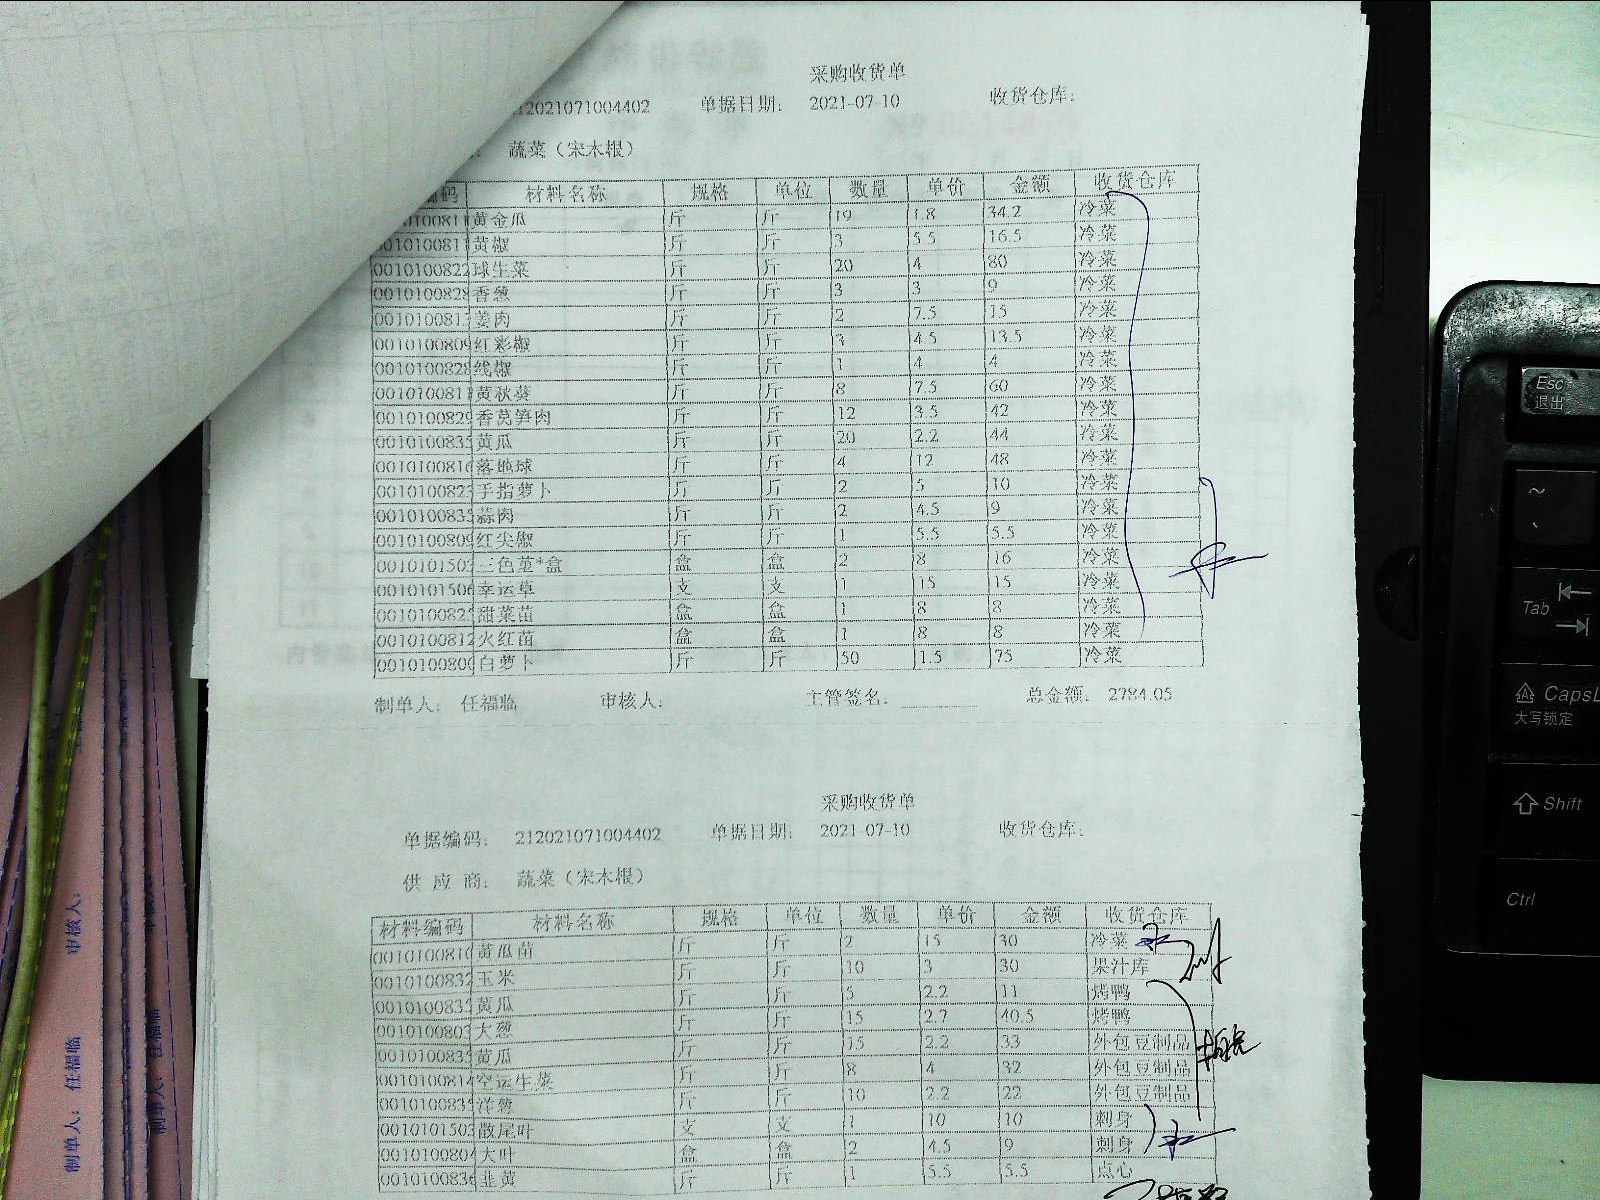 采购收货单
12021071004402 单据日期： 2021-07-10 收货仓库：
： 蔬菜（宋木根）
编码 材料名称 规格 单位 数量 单价 金额 收货仓库
010100811 黄金瓜 斤 斤 19 1.8 34.2 冷菜
001010081 黄椒 斤 斤 3 5.5 16.5 冷菜
0010100822 球生菜 斤 斤 20 4 80 冷菜
0010100828 香葱 斤 斤 3 3 9 冷菜
001010081 姜肉 斤 斤 2 7.5 15 冷菜
0010100809 红彩椒 斤 斤 3 4.5 13.5 冷菜
0010100828 线椒 斤 斤 1 4 4 冷菜
001010081 黄秋葵 斤 斤 8 7.5 60 冷菜
0010100829 香莴笋肉 斤 斤 12 3.5 42 冷菜
0010100835 黄瓜 斤 斤 20 2.2 44 冷菜
0010100816 落地球 斤 斤 4 12 48 冷菜
001010082 手指萝卜 斤 斤 2 5 10 冷菜
001010083 蒜肉 斤 斤 2 4.5 9 冷菜
0010100809 红尖椒 斤 斤 1 5.5 5.5 冷菜
001010150 三色堇*盒 盒 盒 2 8 16 冷菜
0010101506 幸运草 支 支 1 15 15 冷菜
001010082 甜菜苗 盒 盒 1 8 8 冷菜
0010100812 火红苗 盒 盒 1 8 8 冷菜
0010100800 白萝卜 斤 斤 50 1.5 75 冷菜
制单人： 任福临 审核人： 主管签名： 总金额： 2784.05
采购收货单
单据编码： 212021071004402 单据日期： 2021-07-10 收货仓库：
供 应 商： 蔬菜（宋木根）
材料编码 材料名称 规格 单位 数量 单价 金额 收货仓库
0010100810 黄瓜苗 斤 斤 2 15 30 冷菜
0010100832 玉米 斤 斤 10 3 30 果汁库
001010083 黄瓜 斤 斤 5 2.2 11 烤鸭
001010080 大葱 斤 斤 15 2.7 40.5 烤鸭
0010100835 黄瓜 斤 斤 15 2.2 33 外包豆制品
0010100814 空运生菜 斤 斤 8 4 32 外包豆制品
001010083 洋葱 斤 斤 10 2.2 22 外包豆制品
001010150 散尾叶 支 支 1 10 10 刺身
0010100804 大叶 盒 盒 2 4.5 9 刺身
0010100836 韭黄 斤 斤 1 5.5 5.5 点心
审核人：
制单人： 任福临
制单人： 任福临
Esc
退出
~
Tab
CapsL
大写锁定
Shift
Ctrl